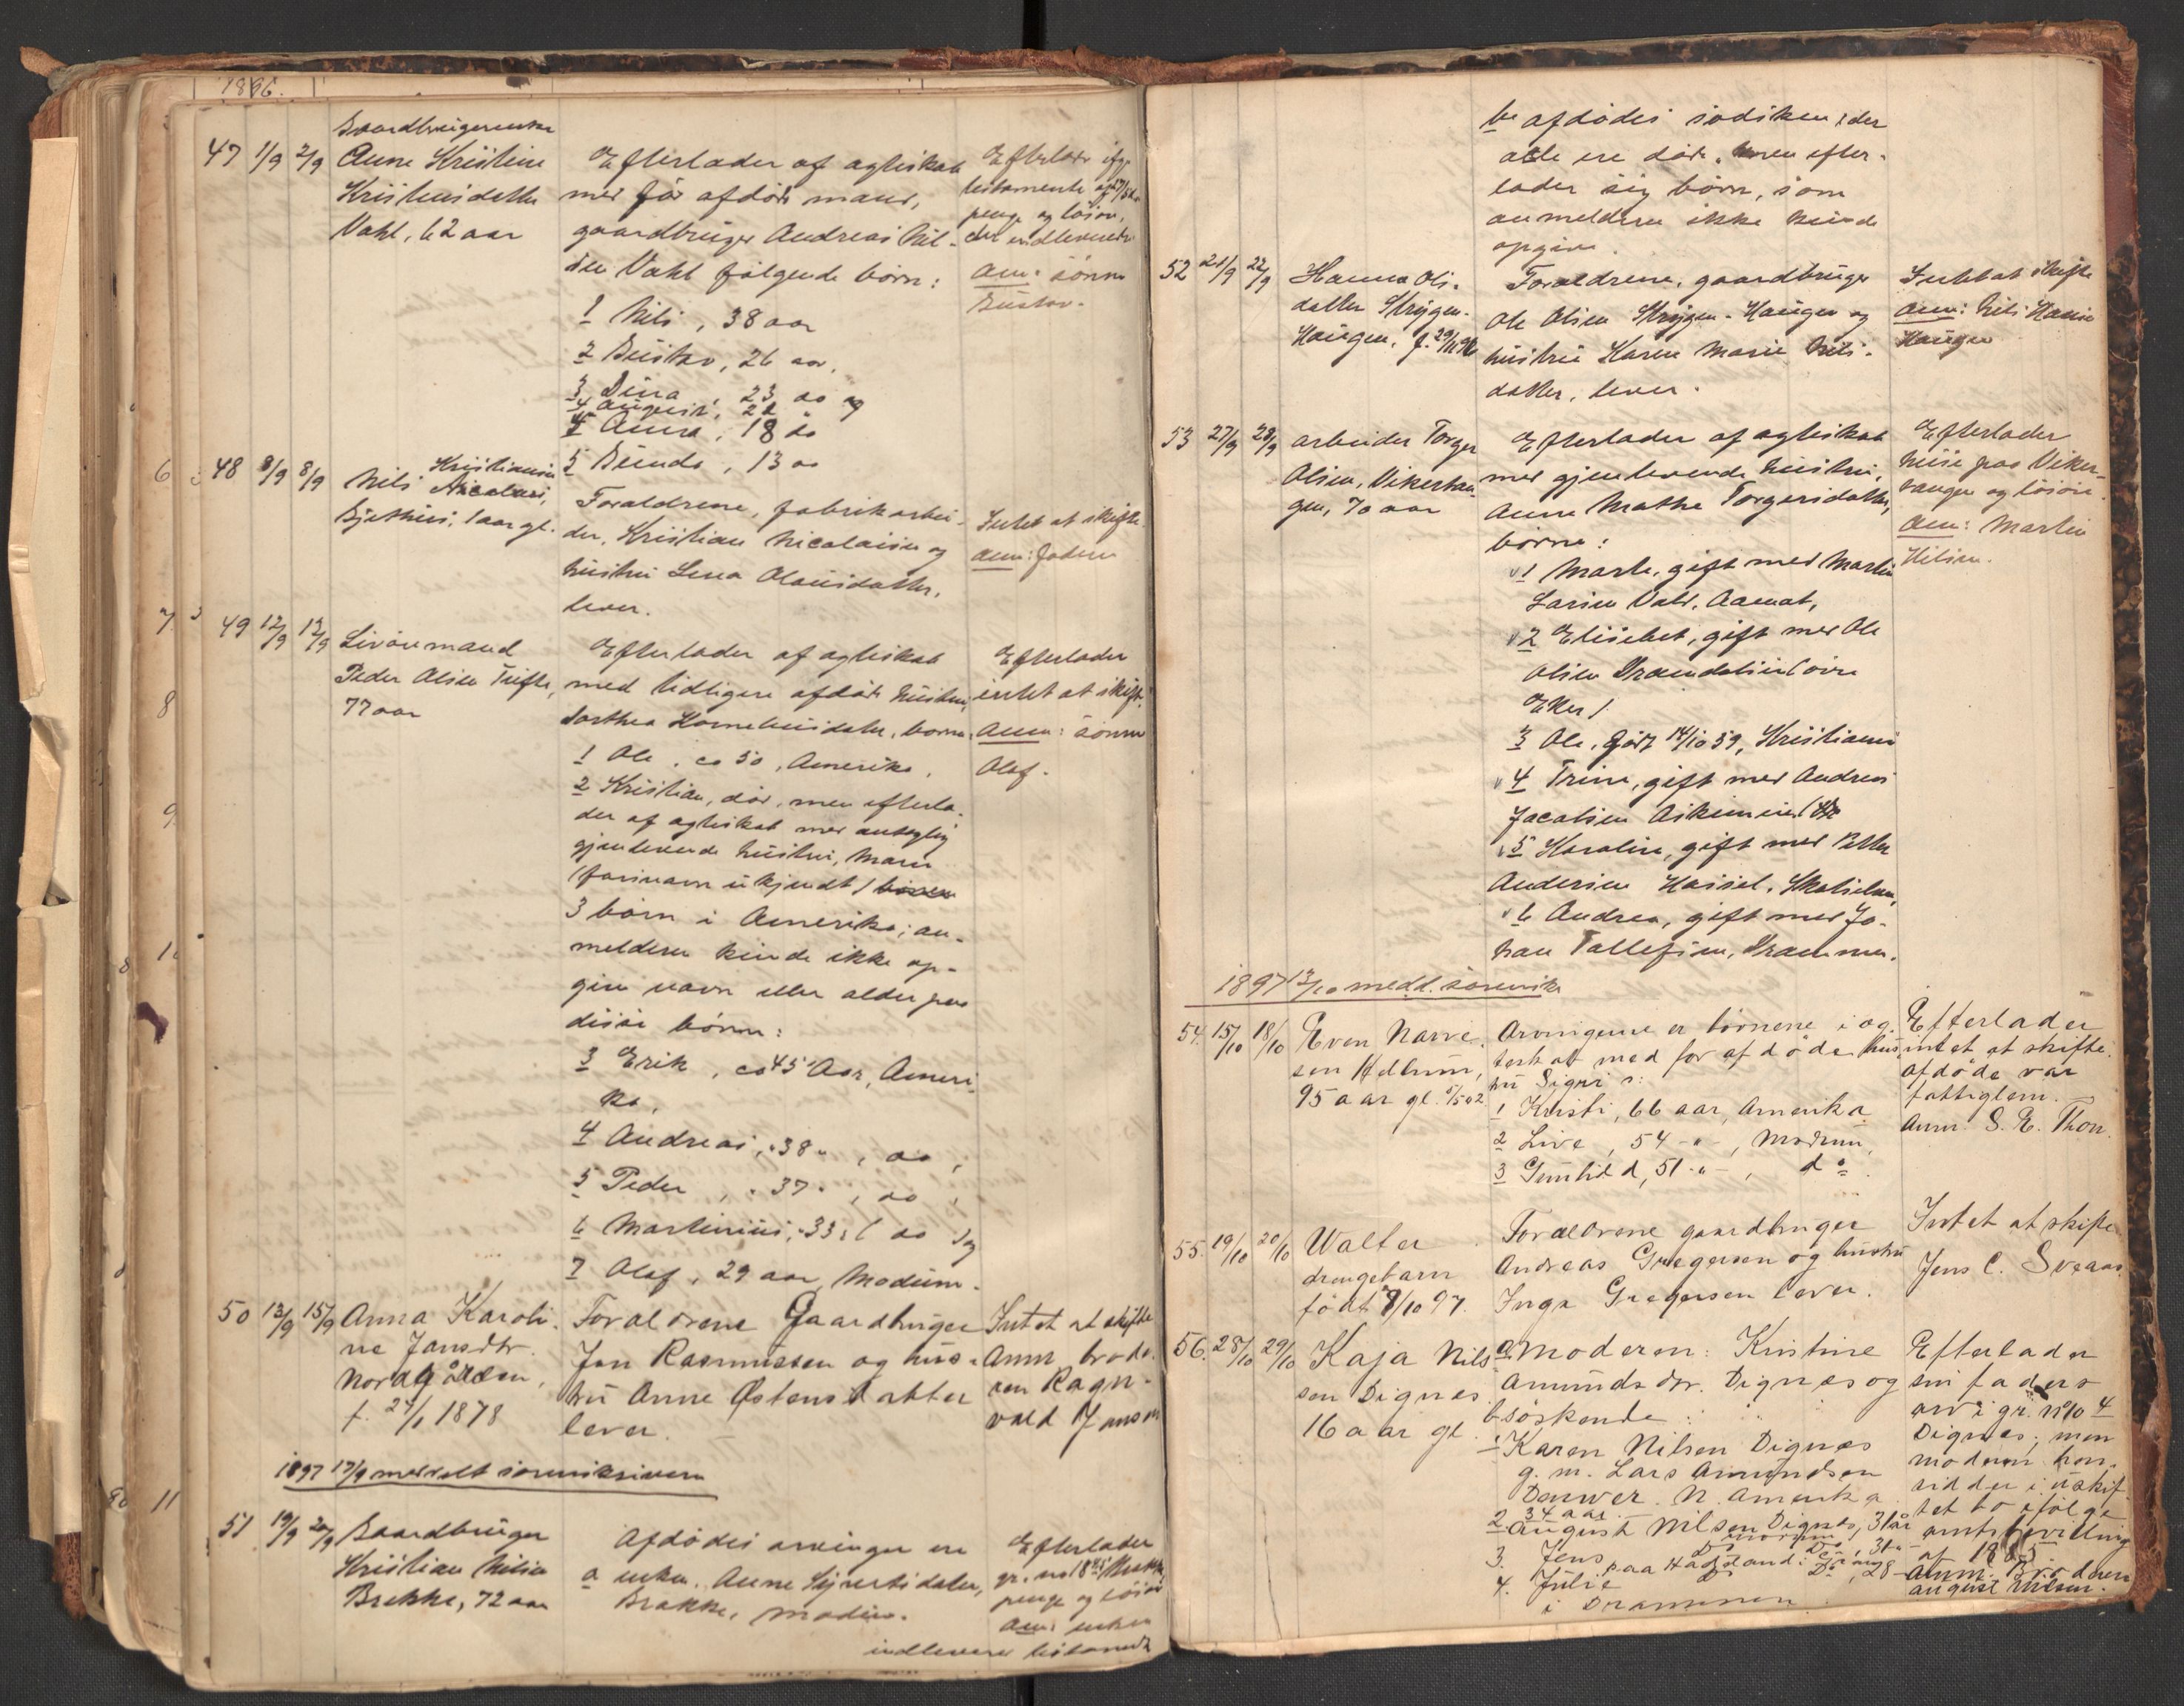 1896.
Gaardbrugerenke
47 1/9 2/9 Anne Kristine
Kristensdatter
Vahl, 62 aar
Efterlader af ægteskab
med før afdøde mand,
gaardbruger Andreas Nil-
sen Vahl følgende børn:
1 Nils, 38 aar
2 Gustav, 26 aar,
3 Dina, 23 do og
4 August, 21
5 Anna, 18 do
5 Gunda, 13 do
Efterlader ifg.
testamente af
penge og løsøre,
Anm: sønnen
Gustav.
48 8/9 8/9 Nils Kristiansen
Nicolaisen,
1 aar gl.
Forældrene, fabrikarbei-
der, Kristian Nicolaisen og
hustru Lena Olausdatter,
lever.
Intet at skifte
Anm: faderen
49 12/9 12/9 Livøremand
Peder Olsen Tufte,
77 aar
Efterlader af ægteskab
med tidligere afdøde hustru,
Dorthea Korneliusdatter, børn:
1 Ole, ca 50, Amerika,
2 Kristian, død, men efterla-
der af ægteskab med antagelig
gjenlevende hustru, Maren
(farsnavn ukjendt)
3 børn i Amerika; an-
melderen kunde ikke op-
give navn eller alder paa
disse børn:
3 Erik, ca 45 Aar, Ameri-
ka,
4 Andreas, " 38 " , do ,
5 Peder , " 37 " , do ,
6 Martinius, " 33, ( do ) og
7 Olaf, 29 aar, Modum.
Efterlader
intet at skifte.
Anm: sønnen
Olaf.
50 13/9 15/9 Anna Karoli-
ne Jansdtr.
Nordgården,
f. 24/1 1878
Forældrene Gaardbruger
Jan Rasmussen og hus-
tru Anne Østensdatter
lever.
Intet at skifte
Anm. brode-
ren Ragn-
vald Jansen
1897 17/9 meddelt sorenskriveren
51 19/9 20/9 Gaardbruger
Kristian Nilsen
Brekke, 72 aar
Afdødes arvinger ere
a enken, Anne Sivertsdatter,
Brekke, Modum.
Efterlader
gr. no 18
penge og løsøre
Anm: enken
indleverer testament
b. afdødes sødsken, der
alle ere døde, men efter-
lader sig børn, som
anmelderen ikke kunde
opgive.
52 21/9 22/9 Hanna Ols-
datter Strygen-
Haugen, f. 29/11 96
Forældrene, gaardbruger
Ole Olsen Strygen-Haugen og
hustru Karen Marie Nils-
datter, lever.
Intet at skifte
Anm: Nils Hansen
Haugen
53 27/9 28/9 arbeider Torger
Olsen, Vikerhau-
gen, 70 aar
Efterlader af ægteskab
med gjenlevende hustru,
Anne Mathea Torgersdatter,
børn:
1 Marte, gift med Martin
Larsen Vald, Aamot,
2 Elisebet, gift med Ole
Olsen Brændalsøe (øvre
Eker)
3 Ole, født 14/10 59, Kristiania
4 Trine, gift med Andreas
Jacobsen
5 Karoline, gift med Petter
Andersen Hassel, Skotselven,
6 Andrea, gift med Jo-
han Tollefsen, Drammen.
Efterlader
huse paa Viker-
haugen og løsøre.
Anm: Martin
Nilsen.
1897 13/10 medd. sorenskr
54. 15/10 18/10 Even Narve-
sen Hellum,
95 aar gl.
Arvingerne er børnene i æg-
teskab med før afdøde hus-
tru Sigri :
1 Kristi, 66 aar, Amerika
2 Live, 54 -"-, Modum,
3 Gunhild, 51 -"-, do.
Efterlader
intet at skifte.
afdøde var
fattiglem.
Anm: S. E. Thon.
55. 19/10 20/10 Walter
drengebarn
født 9/10 97.
Forældrene gaardbruger
Andreas Gregersen og hustru
Inga Gregersen lever.
Intet at skifte
Jens C. Sveaas.
56. 28/10 29/10 Kaja Nils-
sen Dignæs
16 aar gl.
a Moderen: Kristine
Amunds dtr. Dignæs og
b søskende:
1 Karen Nilsen Dignæs
g. m. Lars Amundsen
Denwer. N. Amerika
34 aar.
2 August Nilsen Dignæs, 31 år
3. Jens Do Do, 31 "
paa Hadeland:
4. Julie Do Do, 28 -
i Drammen.
Efterlader
sin faders
arv i gr. no 10 4
Dignæs; men
moderen hen-
sidder i uskif-
tet bo ifølge
amtsbevilling
af 1885
Anm. Broderen
August Nilsen.